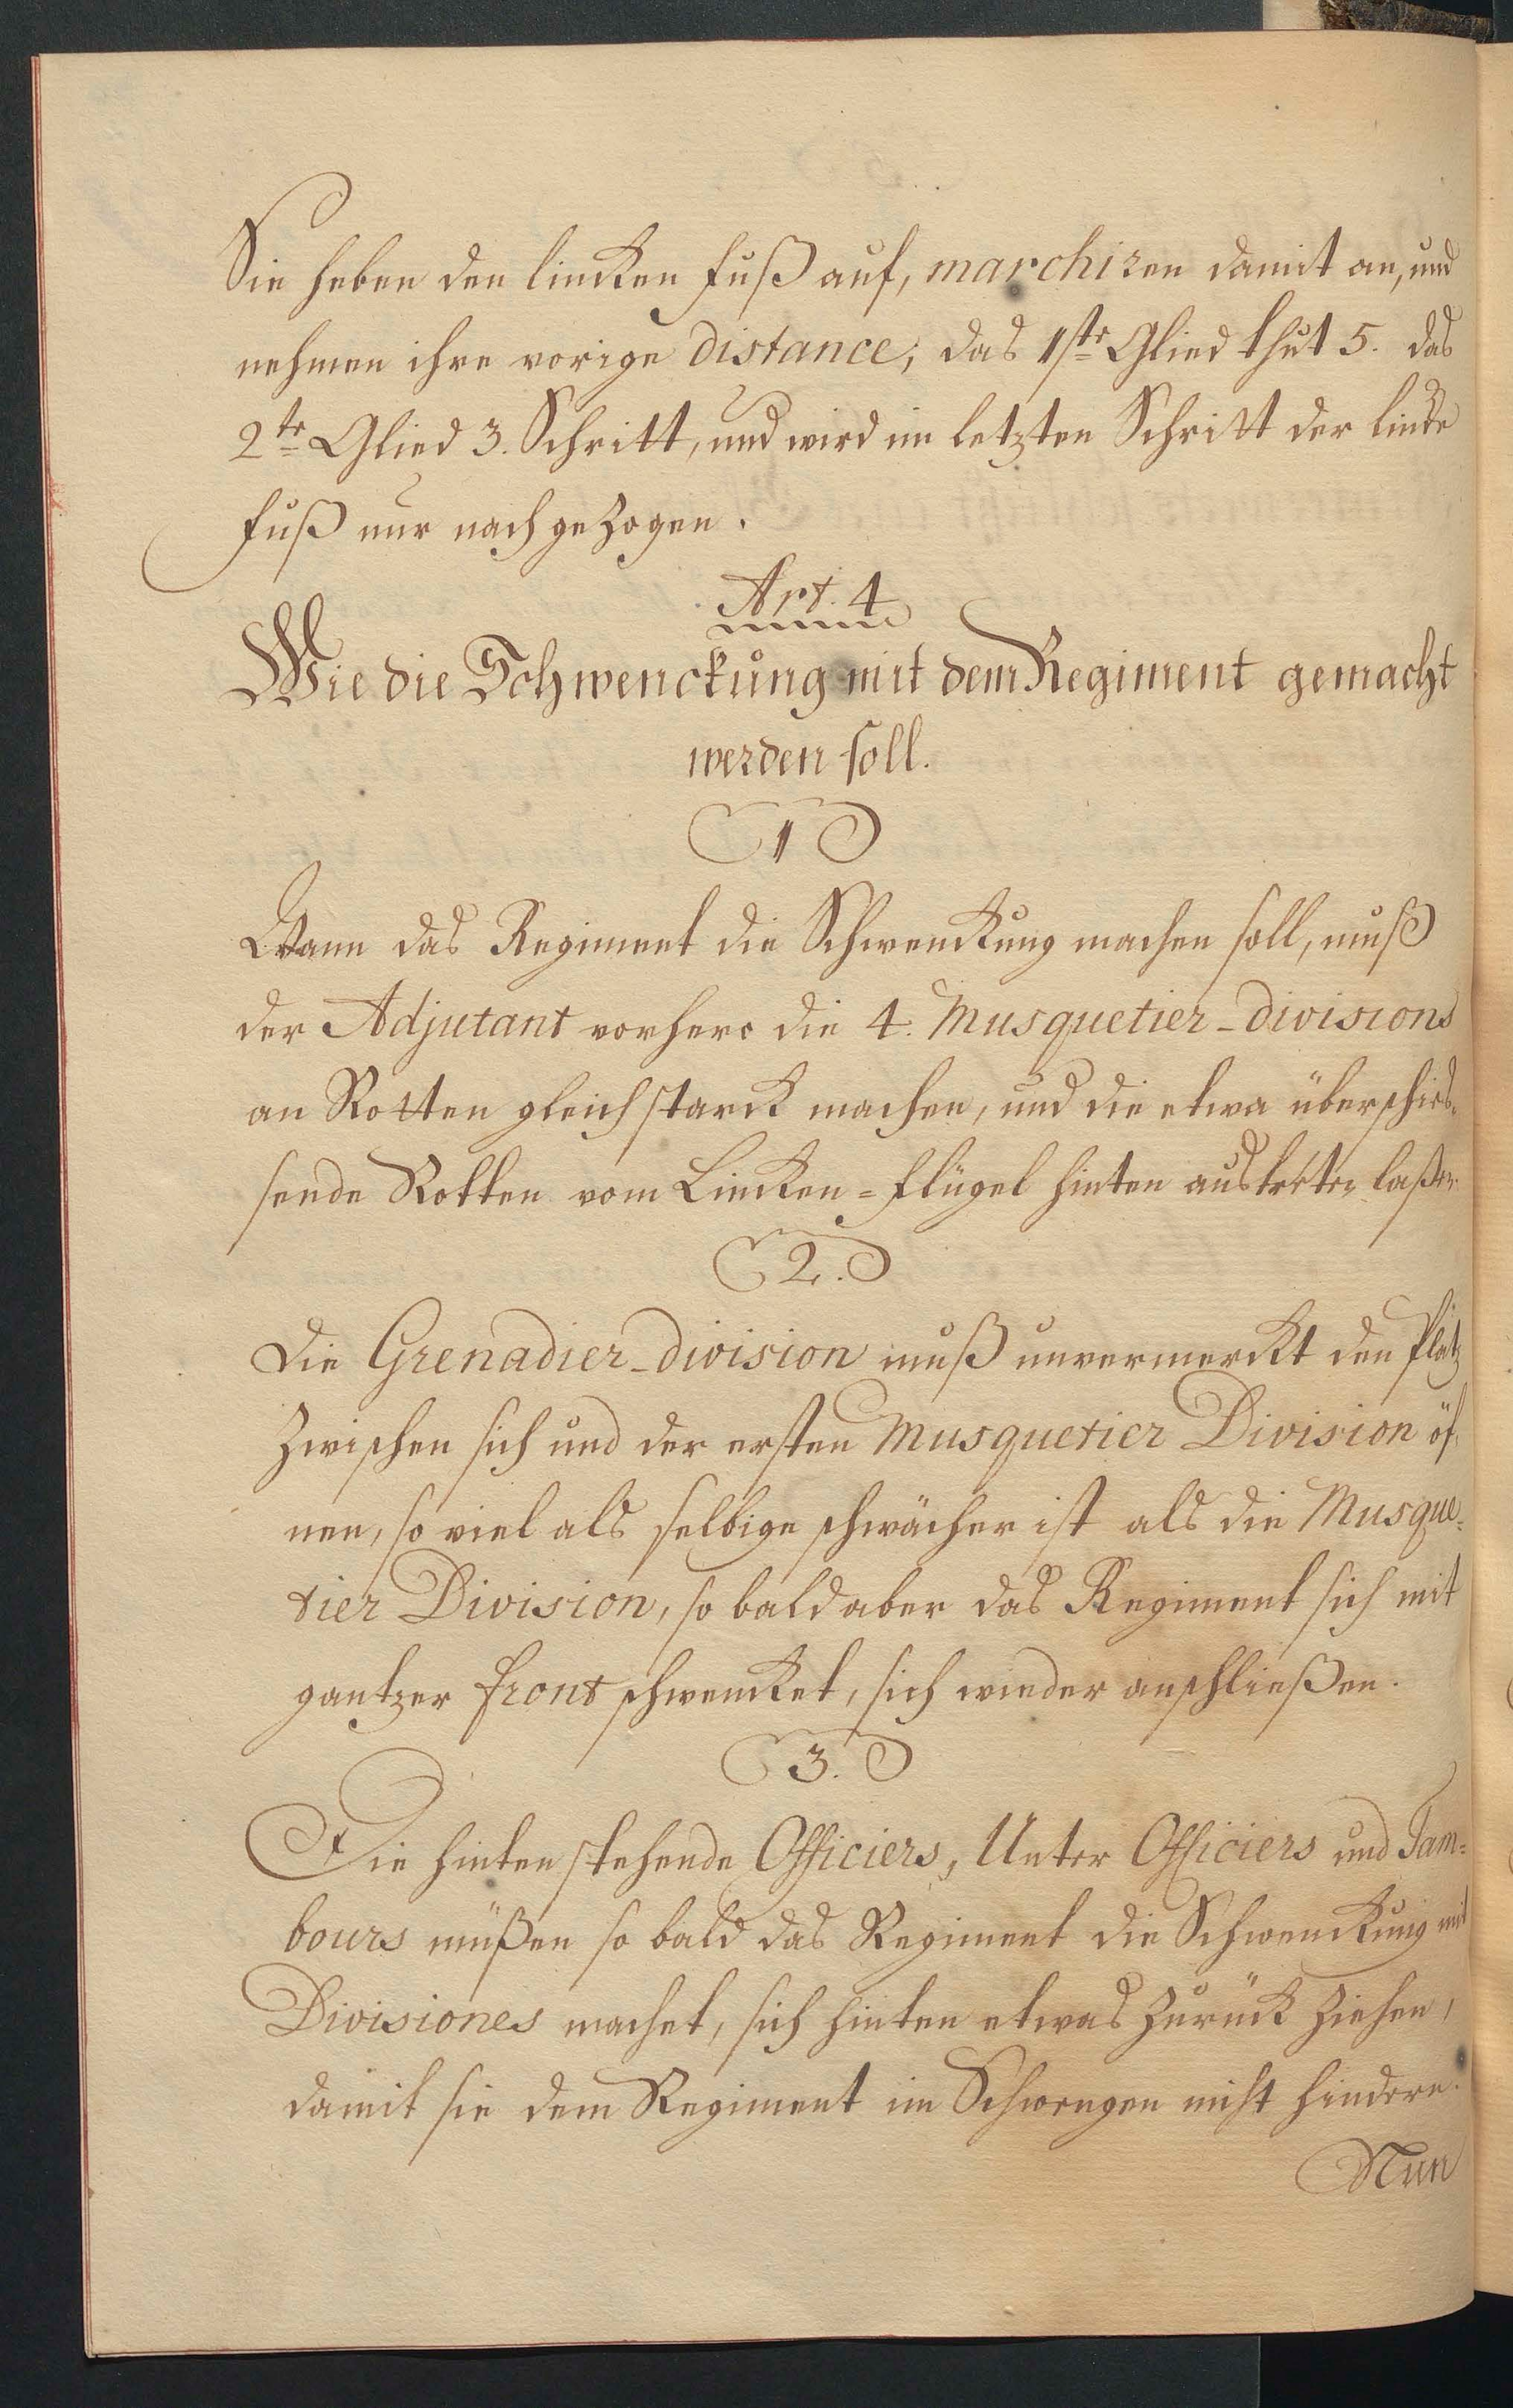 Sie heben den lincken Fuß auf, marchiren damit an, und
nehmen ihre vorige distance, das 1ste Glied thut 5. das
2te Glied 3. Schritt, und wird im letzten Schritt der lincke
Fuß nur nachgezogen.
Art. 4
Wie die Schwenckung mit dem Regiment gemacht
werden soll.
1
Wann das Regiment die Schwenckung machen soll, muß
der Adjutant vorhero die 4. Musquetier-divisions
an Rotten gleich starck machen, und die etwa überschies-
sende Rotten vom Lincken-Flügel hinten austreten laßen.
2.
Die Grenadier-division muß unvermerckt den Platz
zwischen sich und der ersten Musquetier Division öf-
nen, so viel als selbige schwächer ist als die Musque-
tier Division, so bald aber das Regiment sich mit
gantzer Front schwencket, sich wieder anschließen.
3.
Die hinten stehende Officiers, Unter Officiers und Tam-
bours müßen so bald das Regiment die Schwenckung mit
Divisiones machet, sich hinten etwas zurück ziehen,
damit sie dem Regiment im Schwengen nicht hindern.
Nun